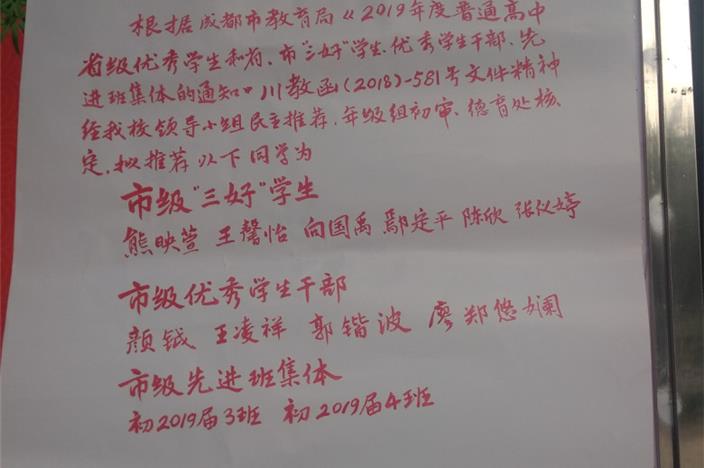 根据成都市教育局《2019年度普通高中
省级优秀学生和省、市"三好"学生、优秀学生干部、先
进班集体的通知》川教函(2018)-581号文件精神
经我校领导小组民主推荐、年级组初审、德育处核
定,拟推荐以下同学为
市级"三好"学生
熊映萱 王馨怡 向国禹 鄢定平 陈欣 张仪婷
市级优秀学生干部
颜钺 王凌祥 郭锴波 廖郑悠斓
市级先进班集体
初2019届3班 初2019届4班